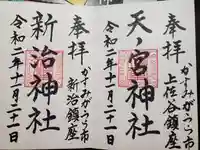 奉拝
かすみがうら市
上佐谷鎮座
天宮神社
令和二年十一月二十一日
奉拝
かすみがうら市
新治鎮座
新治神社
令和二年十一月二十一日